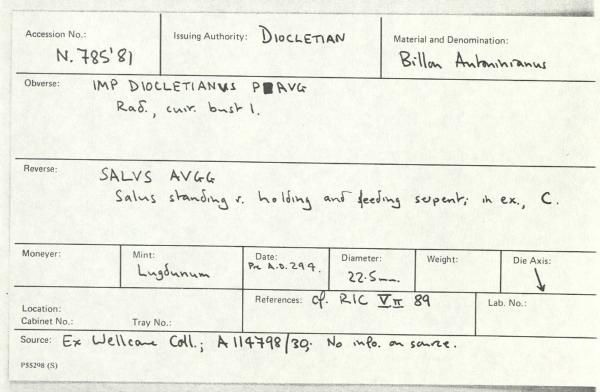 Accession No.: Issuing Authority: DIOCLETIAN Material and Denomination:
N. 785'81 Billon Antoninianus
Obverse: IMP DIOCLETIANUS P AVG
Rad., cuir. bust l.
Reverse: SALVS AVGG
Salus standing r. holding and feeding serpent; in ex., C.
Moneyer: Mint: Date: Diameter: Weight: Die Axis:
Lugdunum Pre A.D. 294. 22.5mm. ↓
References: cf. RIC V II 89 Lab. No.:
Location:
Cabinet No.: Tray No.:
Source: Ex Wellcome Coll.; A114798/30; No info. on source.
P55298 (S)